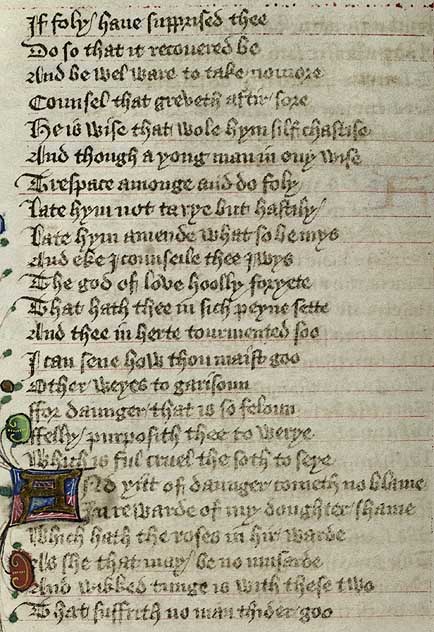 If foly / haue supprised thee
Do so that it recouered be
And be wel ware to take / nomore
Counsel that greveth aftir / sore
He is wise that wole hym silf chastise
And though a yong man in ony wise
Trespace amonge and do foly /
Late hym not tarye but hastily /
Late hym amende what so be mys
And eke I counseile thee I wys
The god of love hoolly foryete
That hath thee in sich peyne sette
And thee in herte tourmented soo
I can sene how thou maist goo
Other weyes to garisoun
ffor daunger that is so feloun
ffelly / purposith thee to werye
Which is ful cruel the soth to seye
And yitt of daunger cometh no blame
In rewarde of my doughter / shame
Which hath the roses in hir / warde
As she that may / be no musarde
And wikked tunge is with these two
That suffrith no man thider / goo